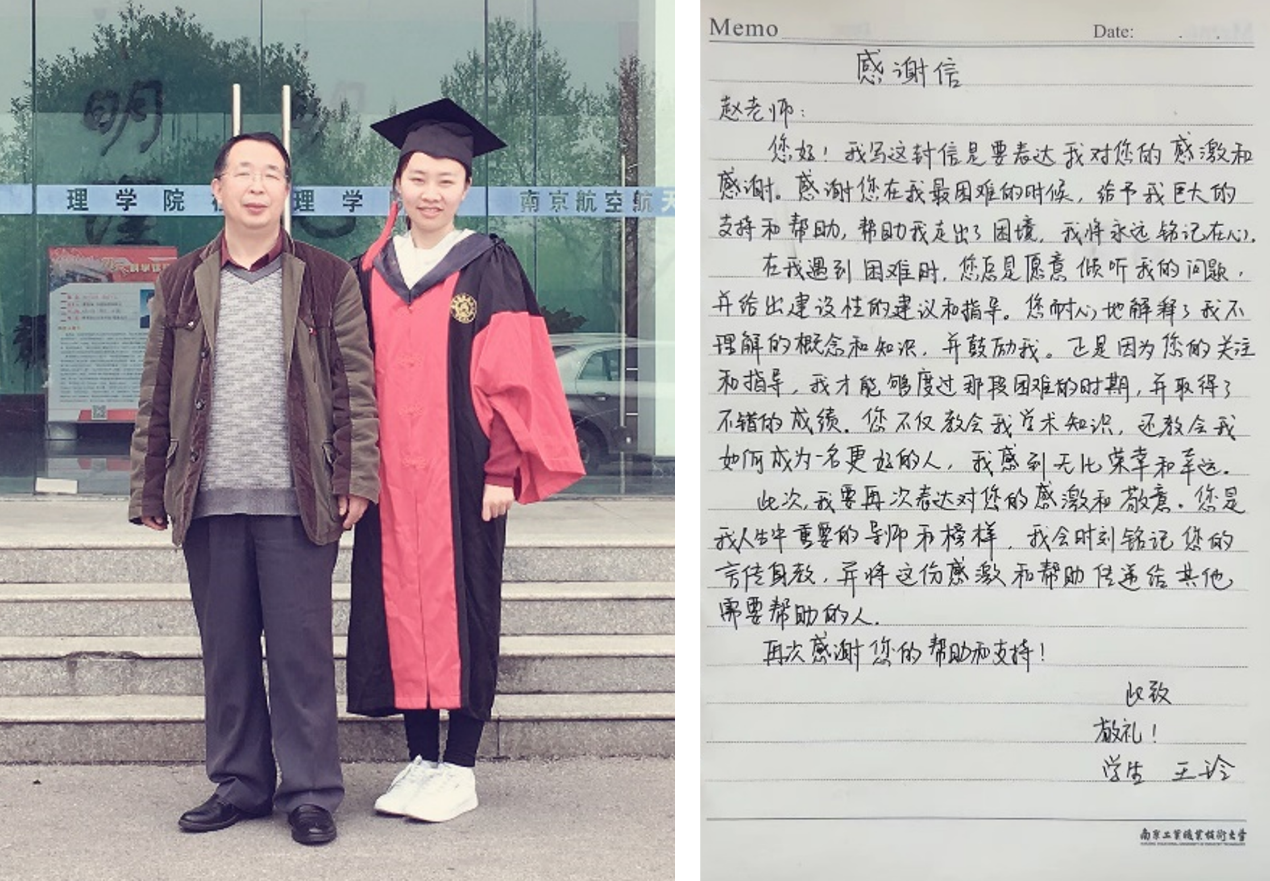 明
理
理学院
理学
南京航空航天
Memo
Date:
感谢信
赵老师：
您好！我写这封信是要表达我对您的感激和
感谢。感谢您在我最困难的时候，给予我巨大的
支持和帮助，帮助我走出了困境，我将永远铭记在心。
在我遇到困难时，您总是愿意倾听我的问题，
并给出建设性的建议和指导。您耐心地解释了我不
理解的概念和知识，并鼓励我。正是因为您的关注
和指导，我才能够度过那段困难的时期，并取得了
不错的成绩。您不仅教会我学术知识，还教会我
如何成为一名更好的人，我感到无比荣幸和幸运。
此次，我要再次表达对您的感激和敬意。您是
我人生中重要的导师和榜样，我会时刻铭记您的
言传身教，并将这份感激和帮助传递给其他
需要帮助的人。
再次感谢您的帮助和支持！
此致
敬礼！
学生 王玲
南京工业职业技术大学